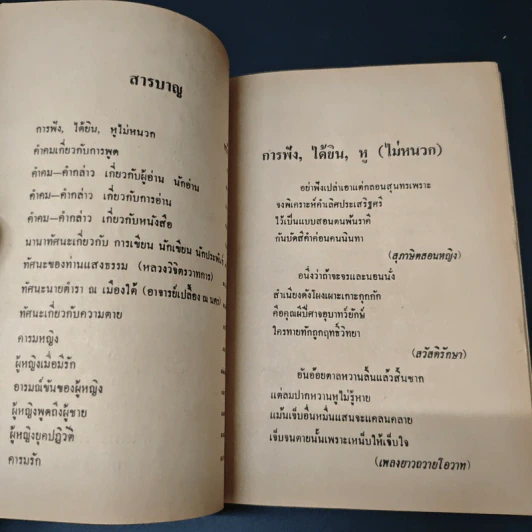 สารบาญ
การฟัง, ได้ยิน, หูไม่หนวก
คำคมเกี่ยวกับการพูด
คำคม—คำกล่าว เกี่ยวกับผู้อ่าน นักอ่าน
คำคม—คำกล่าว เกี่ยวกับการอ่าน
คำคม—คำกล่าว เกี่ยวกับหนังสือ
นานาทัศนะเกี่ยวกับ การเขียน นักเขียน นักประพันธ์
ทัศนะของท่านแสงธรรม (หลวงวิจิตรวาทการ)
ทัศนะนายตำรา ณ เมืองใต้ (อาจารย์เปลื้อง ณ นคร)
ทัศนะเกี่ยวกับความตาย
คารมหญิง
ผู้หญิงเมื่อมีรัก
อารมณ์ขันของผู้หญิง
ผู้หญิงพูดถึงผู้ชาย
ผู้หญิงยุคปฏิวัติ
คารมรัก
การฟัง, ได้ยิน, หู (ไม่หนวก)
อย่าฟังเปล่าเอาแต่กลอนสุนทรเพราะ
จงพิเคราะห์คำเลิศประเสริฐศรี
ไว้เป็นแบบสอนตนพ้นราคี
กันบัดสีคำค่อนคนนินทา
(สุภาษิตสอนหญิง)
อนึ่งว่าถ้าจะจรและนอนนั่ง
สำเนียงดังโผงเผาะเกาะกุกกัก
คือคุณผีปีศาจอุบาทว์ยักษ์
ใครทายทักถูกฤทธิ์วิทยา
(สวัสดิรักษา)
อันอ้อยตาลหวานลิ้นแล้วสิ้นซาก
แต่ลมปากหวานหูไม่รู้หาย
แม้นเจ็บอื่นหมื่นแสนจะแคลนคลาย
เจ็บจนตายนั้นเพราะเหน็บให้เจ็บใจ
(เพลงยาวถวายโอวาท)